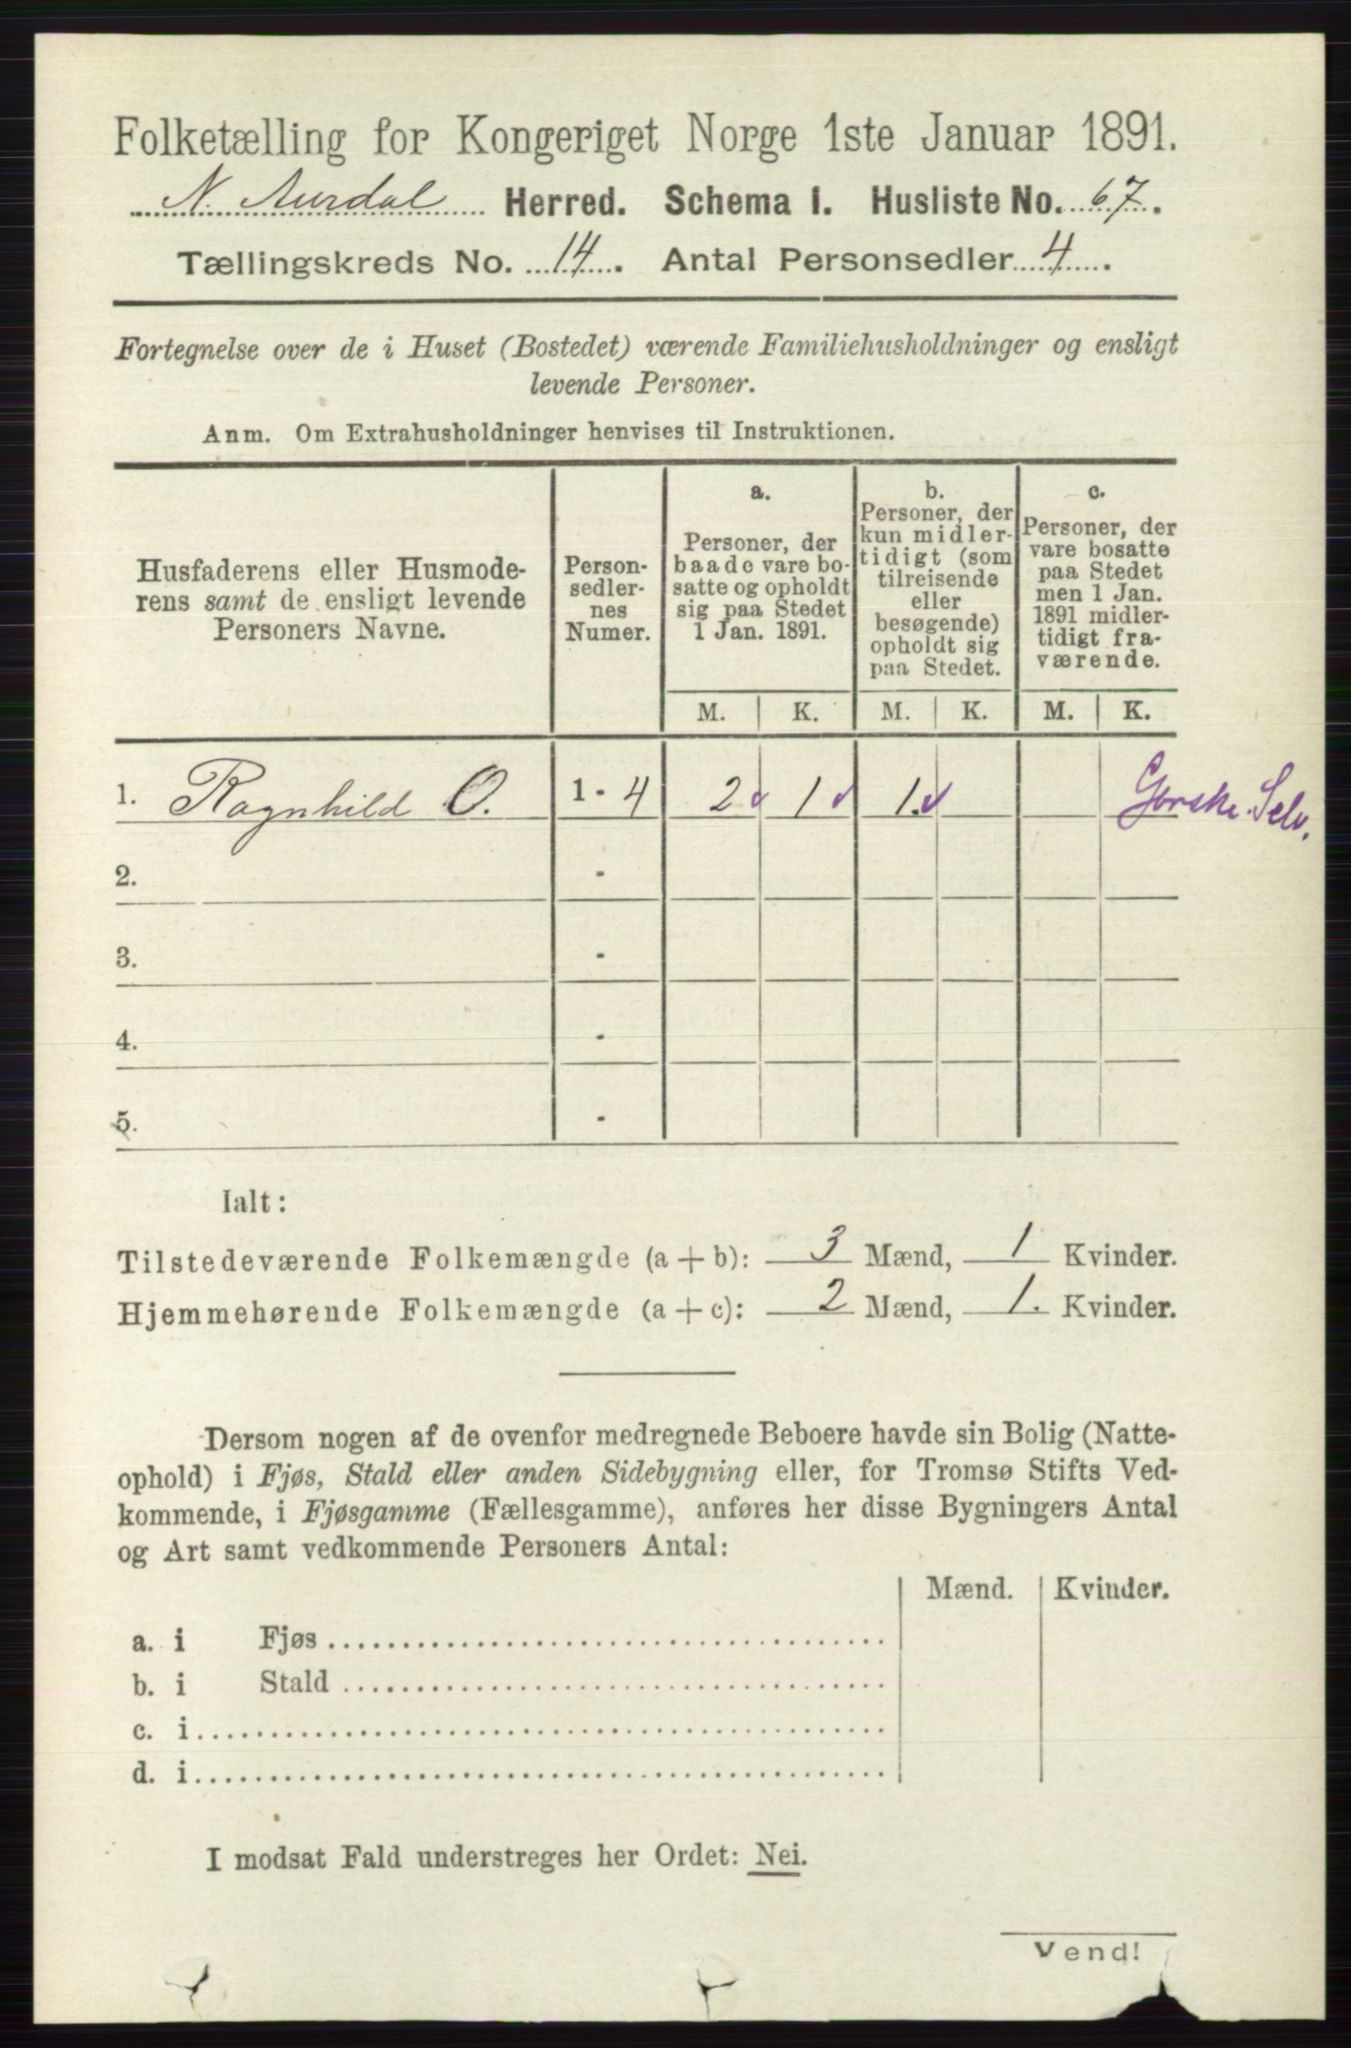 Folketælling for Kongeriget Norge 1ste Januar 1891.
N. Aurdal Herred. Schema I. Husliste No. 67.
Tællingskreds No. 14. Antal Personsedler 4.
Fortegnelse over de i Huset (Bostedet) værende Familiehusholdninger og ensligt
levende Personer.
Anm. Om Extrahusholdninger henvises til Instruktionen.
Husfaderens eller Husmode-
rens samt de ensligt levende
Personers Navne.
Person-
sedler-
nes
Numer.
a.
Personer, der
baade vare bo-
satte og opholdt
sig paa Stedet
1 Jan. 1891.
b.
Personer, der
kun midler-
tidigt (som
tilreisende
eller
besøgende)
opholdt sig
paa Stedet.
c.
Personer, der
vare bosatte
paa Stedet
men 1 Jan.
1891 midler-
tidigt fra-
værende.
M. K. M. K. M. K.
1. Ragnhild O. 1 - 4 2 1 1. Gorske. Selv.
2. -
3. -
4. -
5. -
Ialt:
Tilstedeværende Folkemængde (a + b): 3 Mænd, 1 Kvinder.
Hjemmehørende Folkemængde (a + c): 2 Mænd, 1. Kvinder.
Dersom nogen af de ovenfor medregnede Beboere havde sin Bolig (Natte-
ophold) i Fjøs, Stald eller anden Sidebygning eller, for Tromsø Stifts Ved-
kommende, i Fjøsgamme (Fællesgamme), anføres her disse Bygningers Antal
og Art samt vedkommende Personers Antal:
Mænd. Kvinder.
a. i Fjøs
b. i Stald
c. i
d. i
I modsat Fald understreges her Ordet: Nei.
Vend!